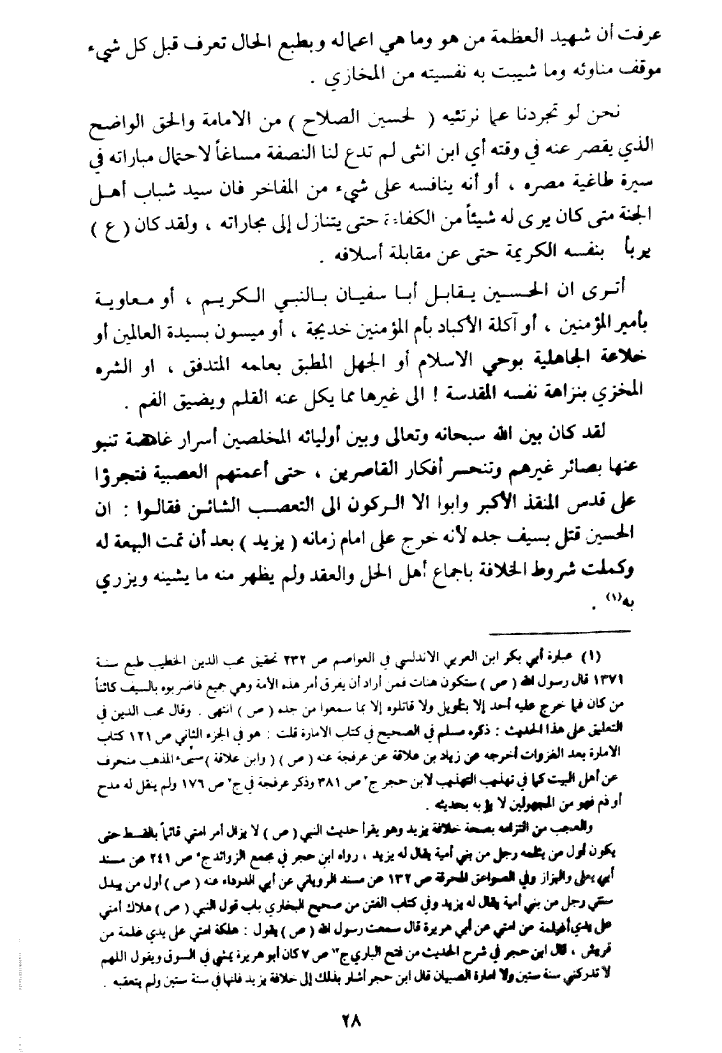 عرفت أن شهيد العظمة من هو وما هي اعماله وبطبع الحال تعرف قبل كل شيء
موقف مناوئه وما شيبت به نفسيته من المخازي .
نحن لو تجردنا عما نرتئيه ( لحسين الصلاح ) من الامامة والحق الواضح
الذي يقصر عنه في وقته أي ابن انثى لم تدع لنا النصفة مساغاً لاحتمال مباراته في
سيرة طاغية مصره ، أو أنه ينافسه على شيء من المفاخر فان سيد شباب أهل
الجنة متى كان يرى له شيئاً من الكفاءة حتى يتنازل إلى مجاراته ، ولقد كان ( ع )
يربأ بنفسه الكريمة حتى عن مقابلة أسلافه .
أترى ان الحسين يقابل أبا سفيان بالنبي الكريم ، أو معاوية
بأمير المؤمنين ، أو آكلة الأكباد بأم المؤمنين خديجة ، أو ميسون بسيدة العالمين أو
خلاعة الجاهلية بوحي الاسلام أو الجهل المطبق بعلمه المتدفق ، او الشره
المخزي بنزاهة نفسه المقدسة ! الى غيرها مما يكل عنه القلم ويضيق الفم .
لقد كان بين الله سبحانه وتعالى وبين أوليائه المخلصين أسرار غامضة تنبو
عنها بصائر غيرهم وتنحسر أفكار القاصرين ، حتى أعمتهم العصبية فتجرؤا
على قدس المنقذ الأكبر وابوا الا الركون الى التعصب الشائن فقالوا : ان
الحسين قتل بسيف جده لأنه خرج على امام زمانه ( يزيد ) بعد أن تمت البيعة له
وكملت شروط الخلافة باجماع أهل الحل والعقد ولم يظهر منه ما يشينه ويزري
به(١) .
(١) عبارة أبي بكر ابن العربي الاندلسي في العواصم ص ٢٣٢ تحقيق محب الدين الخطيب طبع سنة
١٣٧١ قال رسول الله ( ص ) ستكون هنات فمن أراد أن يفرق أمر هذه الأمة وهي جميع فاضربوه بالسيف كائناً
من كان فما خرج عليه أحد إلا بتأويل ولا قاتلوه إلا بما سمعوا من جده ( ص ) انتهى . وقال محب الدين في
التعليق على هذا الحديث : ذكره مسلم في الصحيح في كتاب الامارة قلت : هو في الجزء الثاني ص ١٢١ كتاب
الامارة بعد الغزوات أخرجه عن زياد بن علاقة عن عرفجة عنه ( ص ) ( وابن علاقة ) سيىء المذهب منحرف
عن أهل البيت كما في تهذيب التهذيب لابن حجر ج٣ ص ٣٨١ وذكر عرفجة في ج٧ ص ١٧٦ ولم ينقل له مدح
أو ذم فهو من المجهولين لا يؤبه بحديثه .
والعجب من التزامه بصحة خلافة يزيد وهو يقرأ حديث النبي ( ص ) لا يزال أمر امتي قائماً بالقسط حتى
يكون أول من يثلمه رجل من بني أمية يقال له يزيد ، رواه ابن حجر في مجمع الزوائد ج٥ ص ٢٤١ عن مسند
أبي يعلى والبزاز وفي الصواعق المحرقة ص ١٣٢ عن مسند الروياني عن أبي الدرداء عنه ( ص ) أول من يبدل
سنتي رجل من بني أمية يقال له يزيد وفي كتاب الفتن من صحيح البخاري باب قول النبي ( ص ) هلاك أمتي
على يدي أغيلمة من امتي عن أبي هريرة قال سمعت رسول الله ( ص ) يقول : هلكة امتي على يدي غلمة من
قريش ، قال ابن حجر في شرح الحديث من فتح الباري ج١٣ ص ٧ كان أبو هريرة يمشي في السوق ويقول اللهم
لا تدركني سنة ستين ولا امارة الصبيان قال ابن حجر أشار بذلك إلى خلافة يزيد فانها في سنة ستين ولم يتعقبه .
٢٨